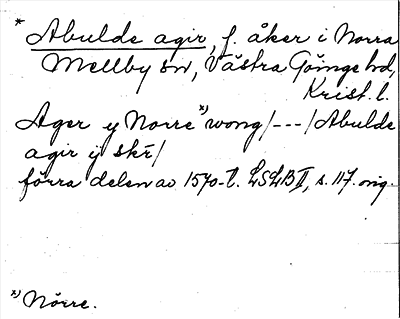 * Abulde agir, f. åker i Norra
Mellby sn, Västra Göinge hd,
Krist. l.
Ager y Norre x) wong/---/Abulde
agir ÿ skr̄/
förra delen av 1570-t. LSLB II, s. 117. orig.
x) Nörre.